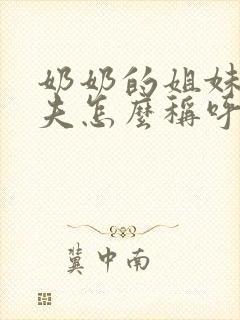 奶奶的姐妹
夫怎麼稱呼
冀中南